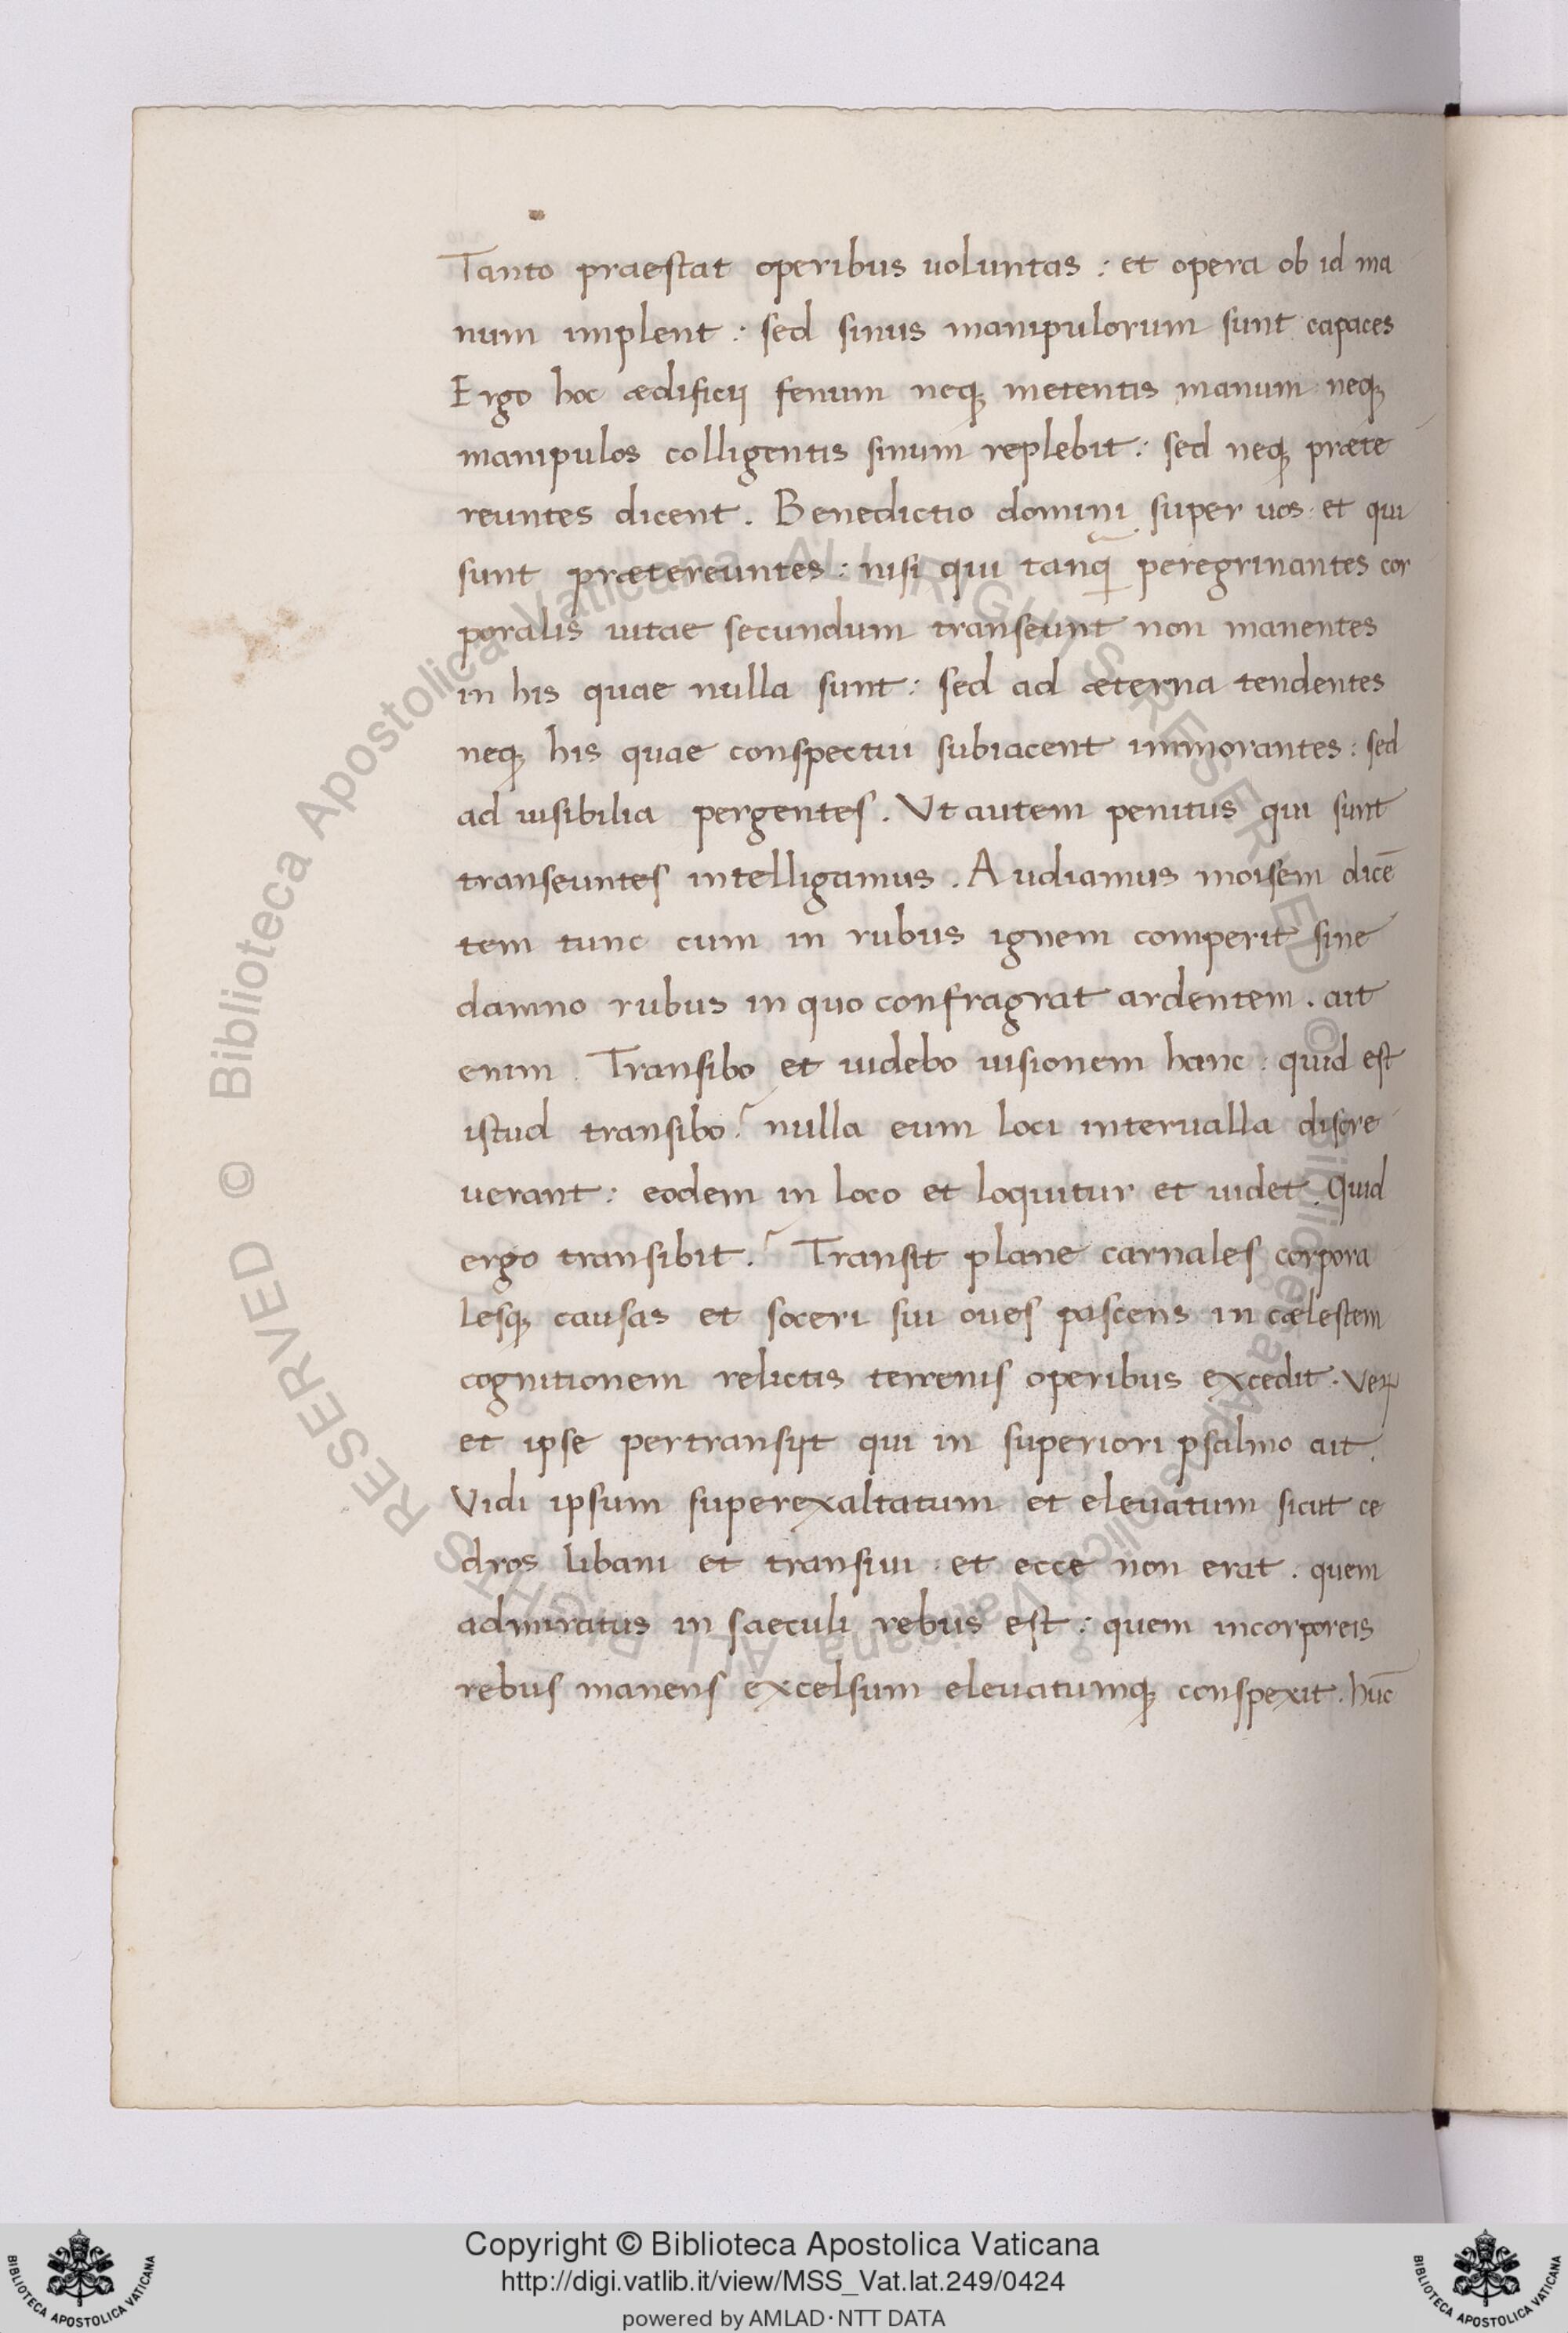 Tanto praestat operibus uoluntas : et opera ob id ma
num implent : sed sinus manipulorum sunt capaces
Ergo hoc ædificij fenum neqꝫ metentis manum neqꝫ
manipulos colligentis sinum replebit : sed neqꝫ præte
reuntes dicent . Benedictio domini super uos · et qui
sunt prætereuntes : nisi qui tanꝙ̃ peregrinantes cor
poralis uitae secundum transeunt non manentes
in his quae nulla sunt : sed ad æterna tendentes
neqꝫ his quae conspectui subiacent immorantes : sed
ad uisibilia pergentes . Vt autem penitus qui sunt
transeuntes intelligamus . Audiamus moisem dicē
tem tunc cum in rubus ignem comperit sine
damno rubus in quo confragrat ardentem . ait
enim . Transibo et uidebo uisionem hanc : quid est
istud transibo ? nulla eum loci interualla discre
uerant : eodem in loco et loquitur et uidet . Quid
ergo transibit ? Transit plane carnales corpora
lesqꝫ causas et soceri sui oues pascens in cælestem
cognitionem relictis terrenis operibus excedit . Veꝝ
et ipse pertransijt qui in superiori psalmo ait .
Vidi ipsum superexaltatum et eleuatum sicut ce
dros libani et transiui · et ecce non erat . quem
admiratus in saeculi rebus est : quem incorporeis
rebus manens excelsum eleuatumqꝫ conspexit . hūc
© Biblioteca Apostolica Vaticana ALL RIGHTS RESERVED © Biblioteca Apostolica Vaticana ALL RIGHTS RESERVED
Copyright © Biblioteca Apostolica Vaticana
http://digi.vatlib.it/view/MSS_Vat.lat.249/0424
powered by AMLAD·NTT DATA
BIBLIOTECA APOSTOLICA VATICANA
BIBLIOTECA APOSTOLICA VATICANA